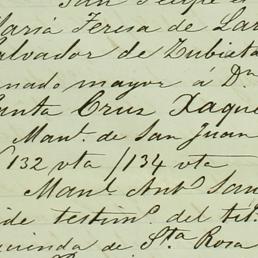 San Felipe
María Teresa de Lar
Salvador de Zubieta
nado mayor á Dn
Santa Cruz Xaque
Manl. de San Juan
132 vta / 134 vta
Manl Anto San
ide testimo del tit.
cienda de Sta Rosa